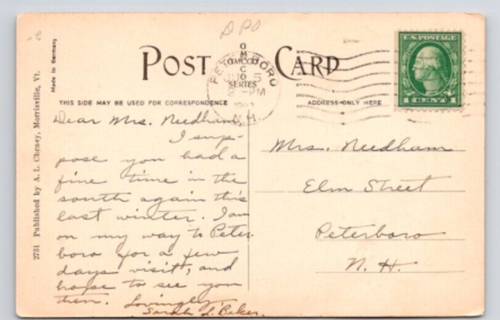 DPO
Made in Germany.
POST CARD
OMCCO
TOMCCO
C
OMC
SERIES
PETERBORO
N.H.
U.S. POSTAGE
1 CENT 1
THIS SIDE MAY BE USED FOR CORRESPONDENCE
ADDRESS ONLY HERE
2731 Published by A. L. Cheney, Morrisville, Vt.
Dear Mrs. Needham,
I sup-
pose you had a
fine time in the
south again this
last winter. I am
on my way to Peter-
boro for a few
days visit, and
hope to see you
then. Lovingly,
Sarah L. Baker.
Mrs. Needham
Elm Street
Peterboro
N. H.